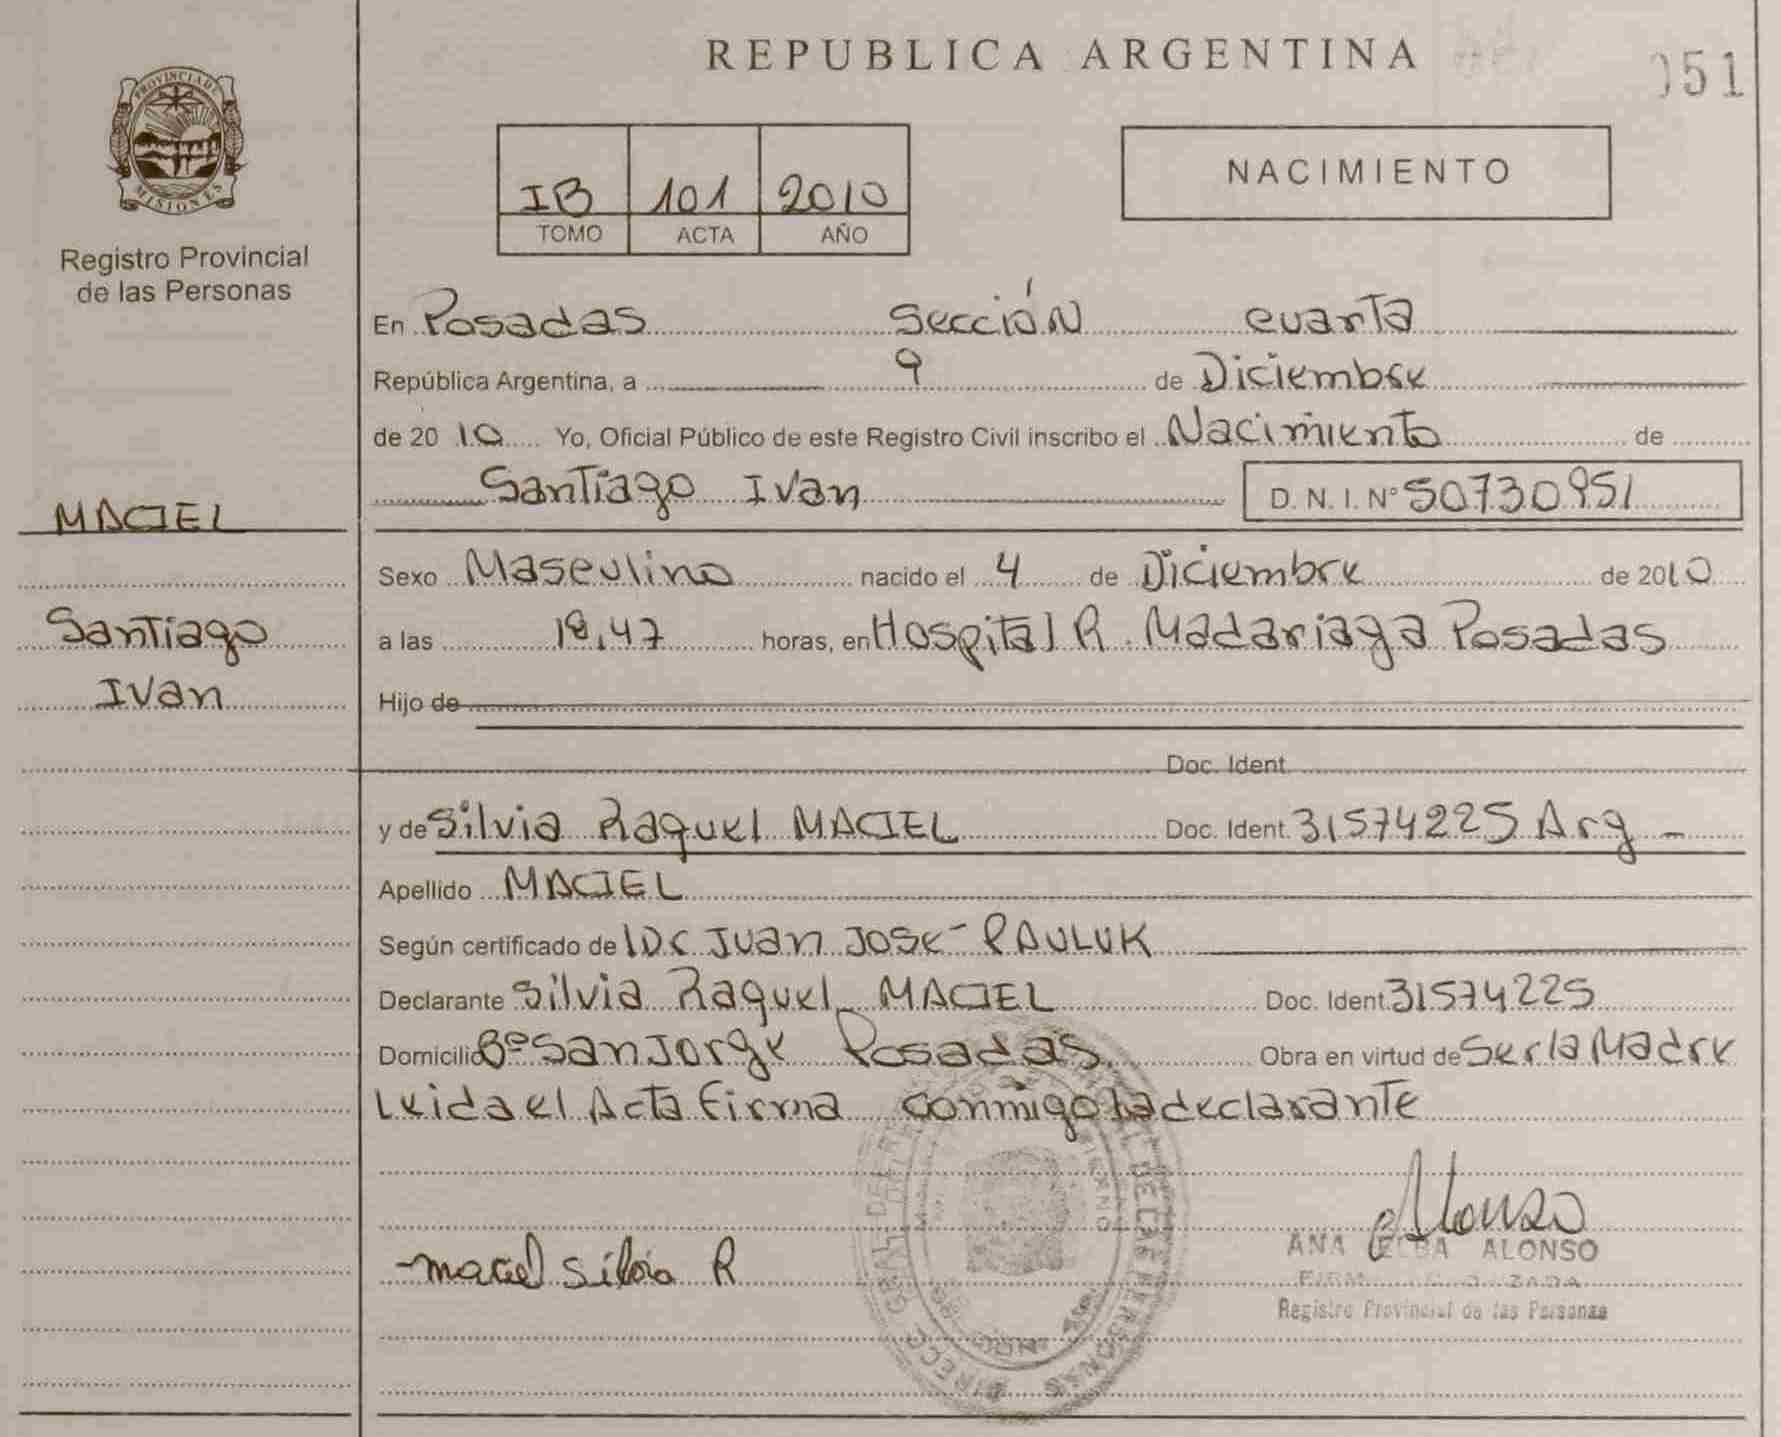 REPUBLICA ARGENTINA
051
PROVINCIA DE MISIONES
Registro Provincial
de las Personas
IB 101 2010
TOMO ACTA AÑO
NACIMIENTO
En Posadas Sección cuarta
República Argentina, a 9 de Diciembre
de 2010 Yo, Oficial Público de este Registro Civil inscribo el Nacimiento de
Santiago Ivan D. N. I. Nº 50730951
MACIEL
Santiago
Ivan
Sexo Masculino nacido el 4 de Diciembre de 2010
a las 18,47 horas, en Hospital R. Madariaga Posadas
Hijo de
Doc. Ident.
y de Silvia Raquel MACIEL Doc. Ident. 31574225 Arg -
Apellido MACIEL
Según certificado de Dr Juan Jose PAULUK
Declarante Silvia Raquel MACIEL Doc. Ident. 31574225
Domicilio Bº San Jorge Posadas Obra en virtud de Ser la Madre
Leida el Acta firma conmigo la declarante
Maciel Silvia R
Alonso
ANA ELBA ALONSO
Registro Provincial de las Personas